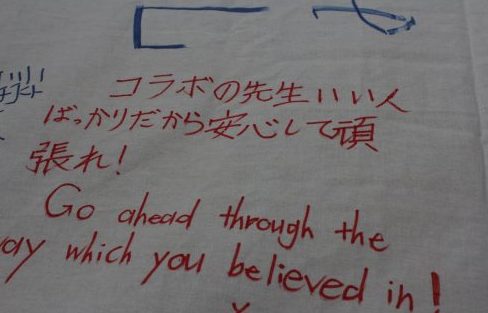 コラボの先生いい人
ばっかりだから安心して頑
張れ!
Go ahead through the
way which you believed in!